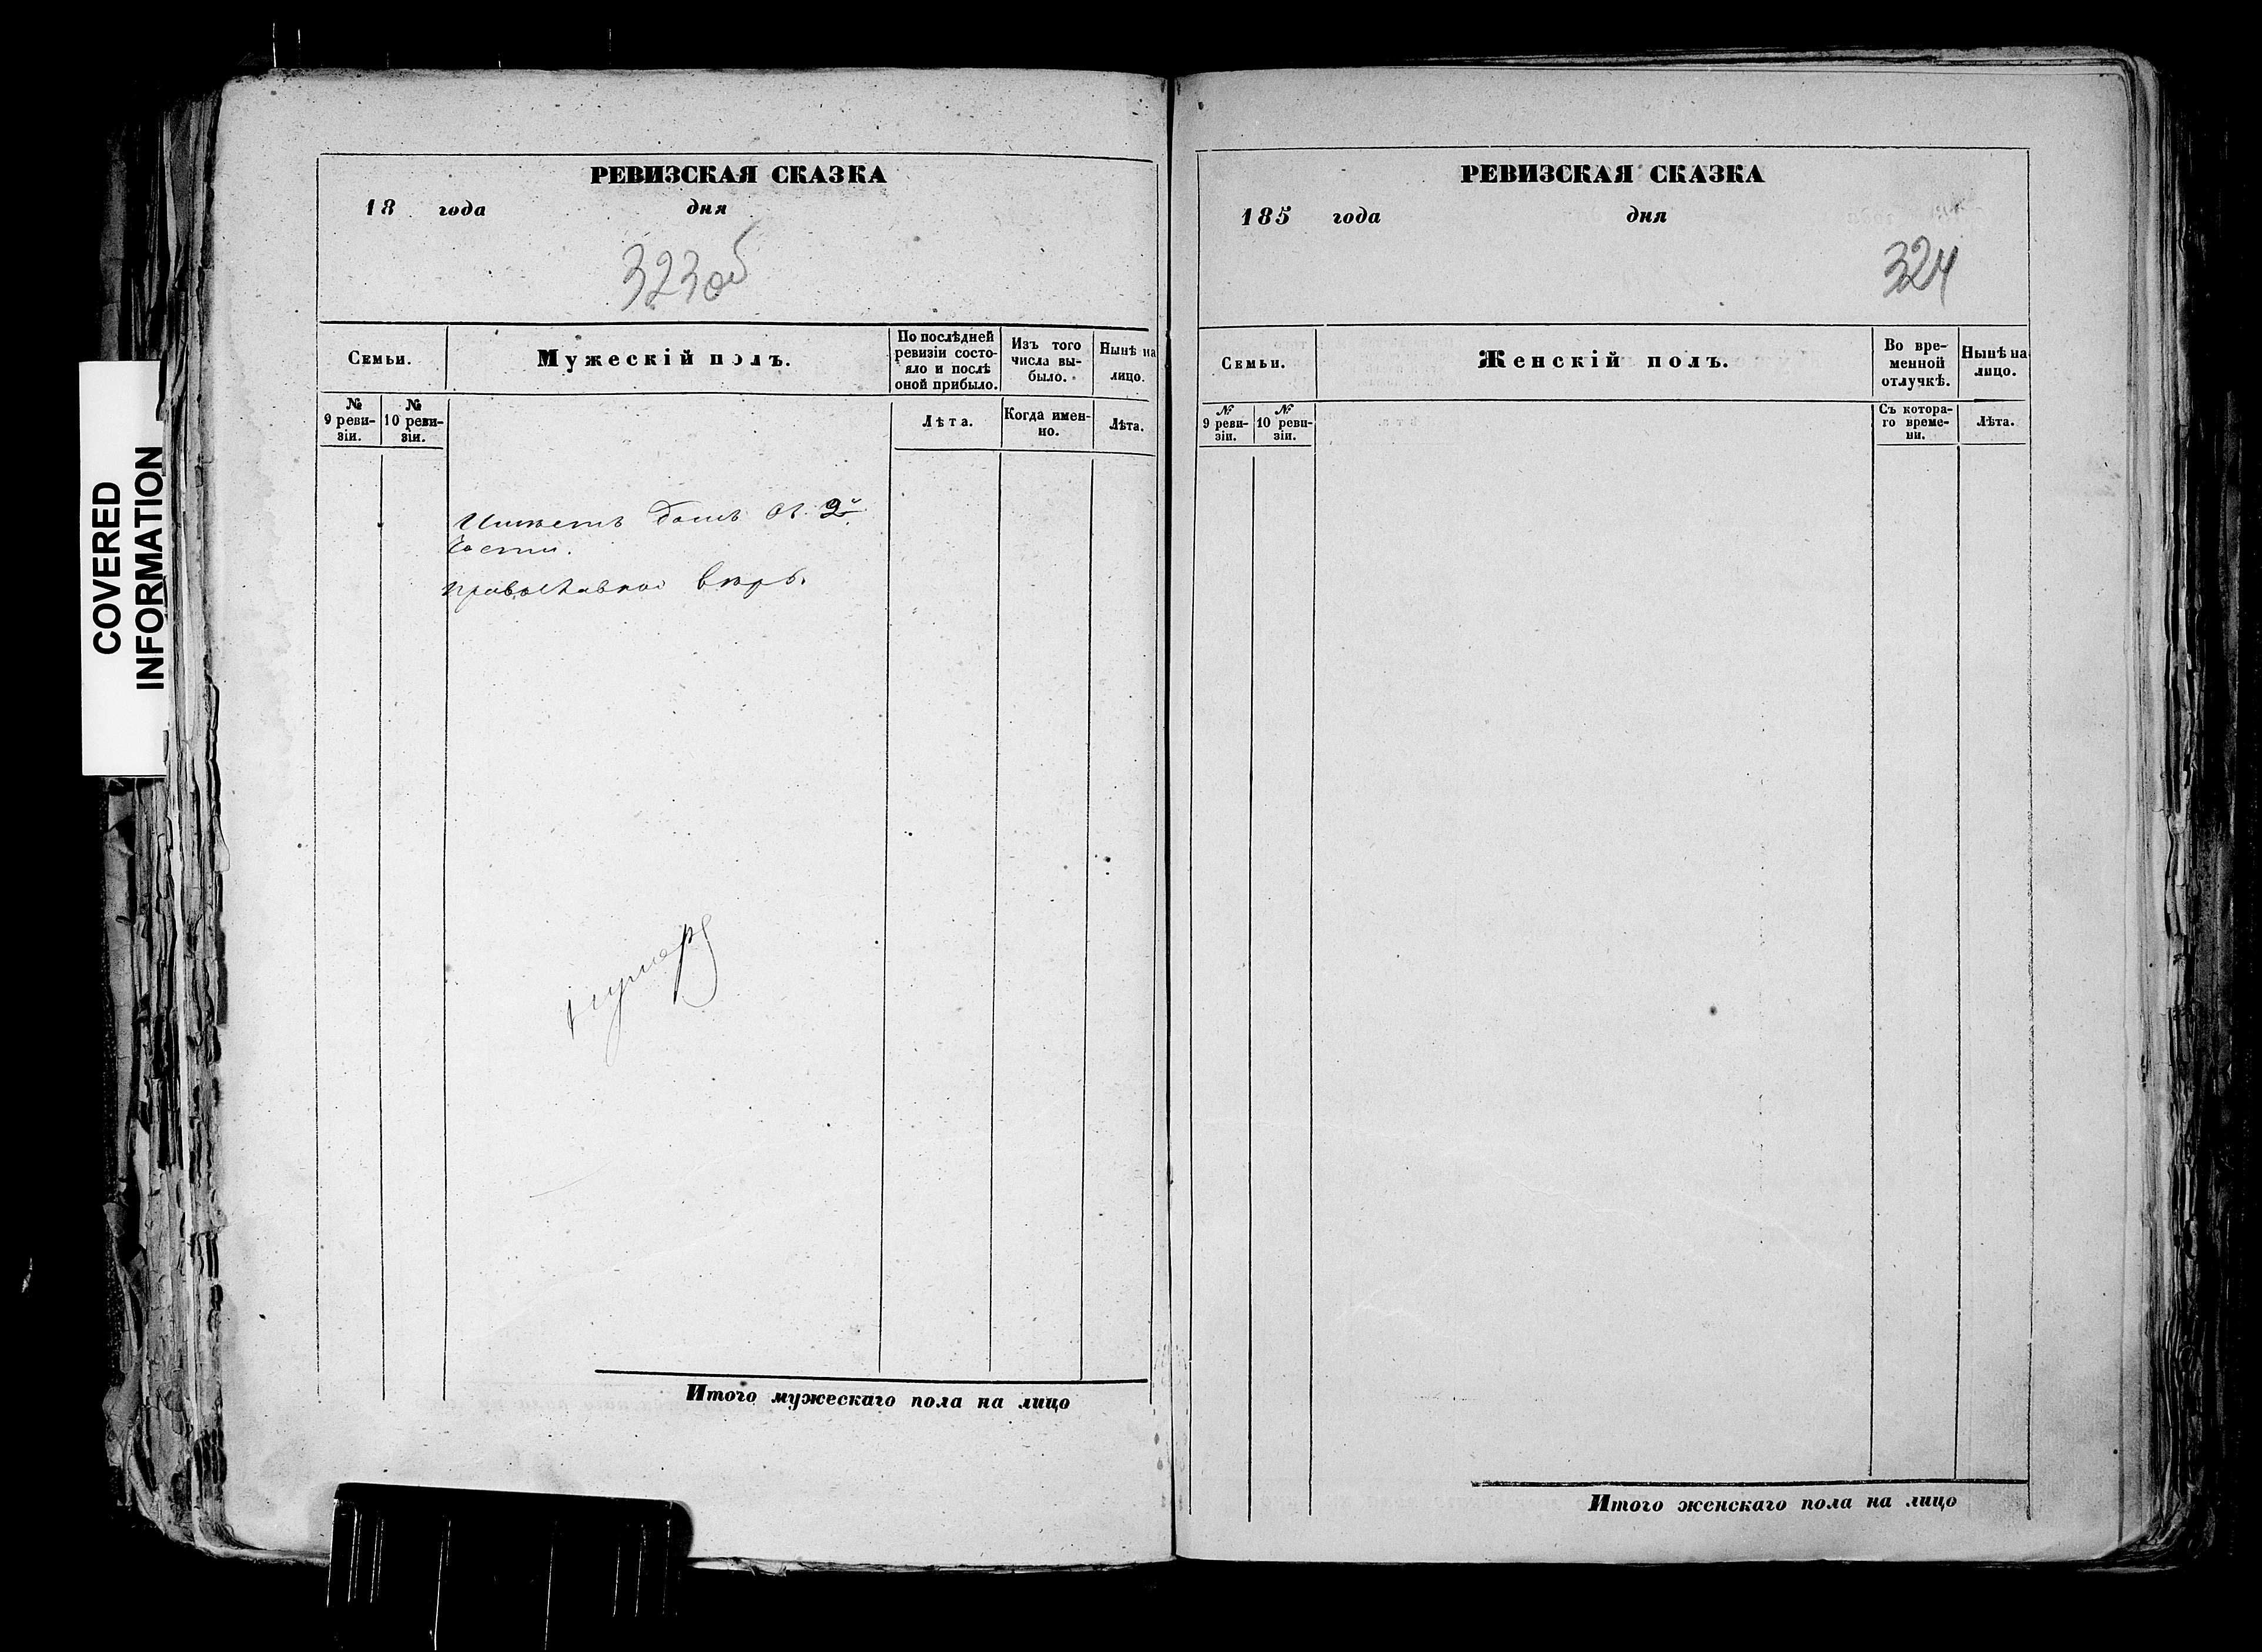 РЕВИЗСКАЯ СКАЗКА
18 года дня
323об
Семьи.
Мужескій полъ.
По послѣдней
ревизіи состо-
яло и послѣ
оной прибыло.
Изъ того
числа вы-
было.
Нынѣ на
лицо.
№
9 реви-
зіи.
№
10 реви-
зіи.
Лѣта.
Когда имен-
но.
Лѣта.
Имѣетъ домъ во 2й
части.
православной вѣры.
Итого мужескаго пола на лицо
РЕВИЗСКАЯ СКАЗКА
185 года дня
324
Семьи.
Женскій полъ.
Во вре-
менной
отлучкѣ.
Нынѣ на
лицо.
№
9 реви-
зіи.
№
10 реви-
зіи.
Съ котора-
го време-
ни.
Лѣта.
Итого женскаго пола на лицо
COVERED
INFORMATION